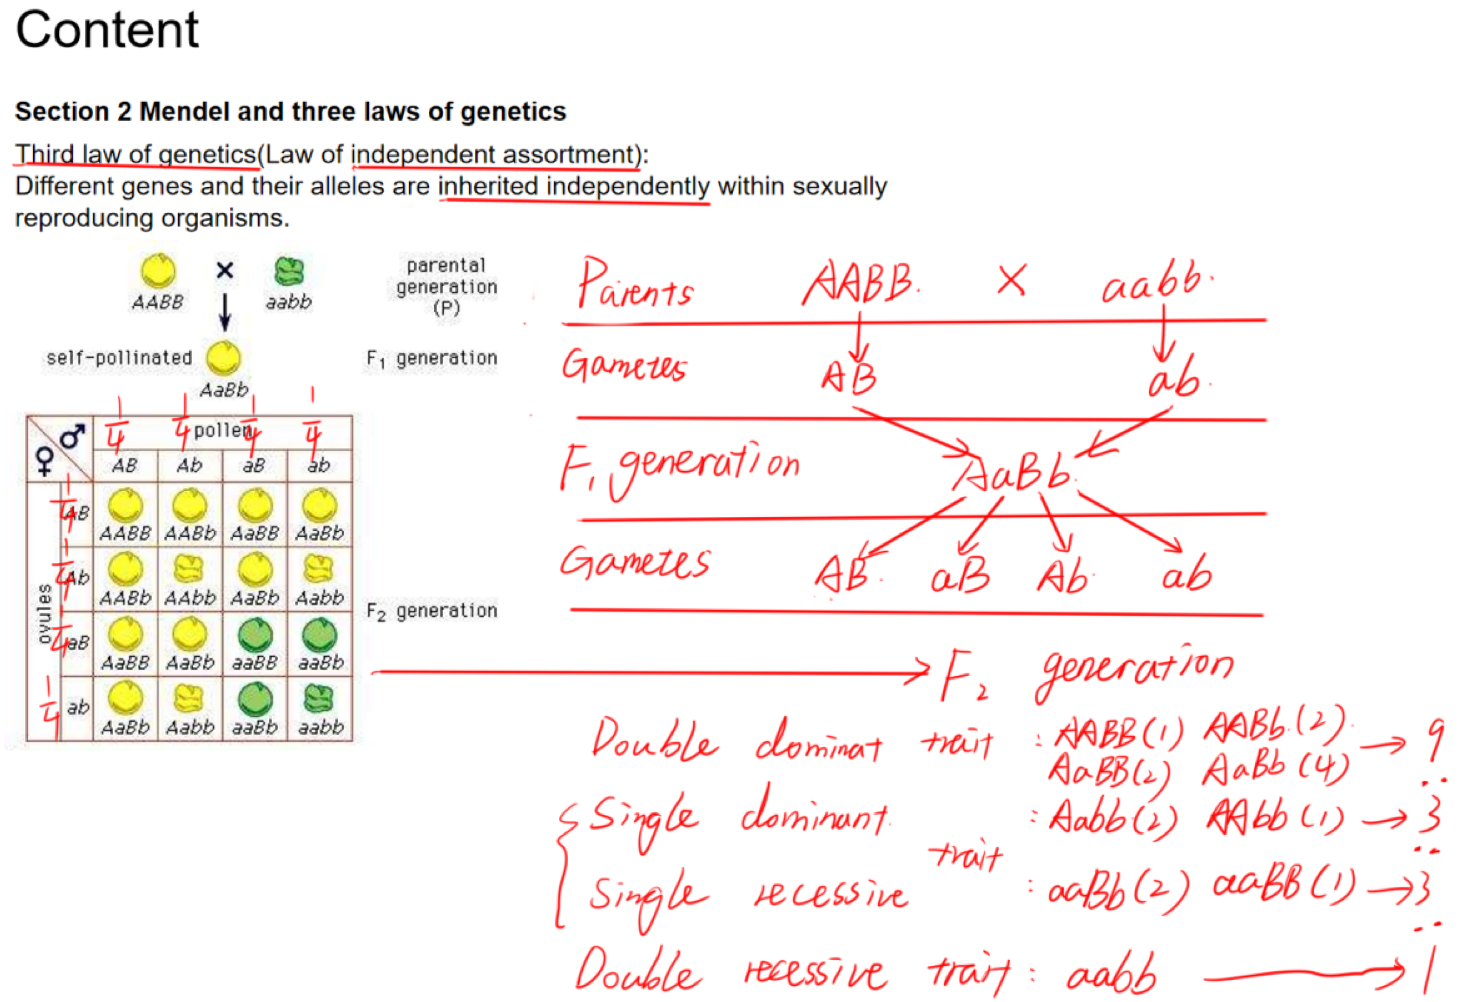 Content
Section 2 Mendel and three laws of genetics
Third law of genetics(Law of independent assortment):
Different genes and their alleles are inherited independently within sexually
reproducing organisms.
× parental
generation
(P)
AABB aabb
self-pollinated F1 generation
AaBb
1/4 1/4 1/4 1/4
pollen
♂
♀
AB Ab aB ab
ovules
1/4 AB AABB AABb AaBB AaBb
1/4 Ab AABb AAbb AaBb Aabb
1/4 aB AaBB AaBb aaBB aaBb
1/4 ab AaBb Aabb aaBb aabb
F2 generation
Parents AABB. × aabb.
Gametes AB ab.
F1 generation AaBb.
Gametes AB. aB Ab. ab
F2 generation
Double dominat trait : AABB(1) AABb.(2). → 9
AaBB(2) AaBb(4) :
Single dominant. : Aabb(2) AAbb(1) → 3
trait :
Single recessive : aaBb(2) aaBB(1) → 3
:
Double recessive trait : aabb → 1